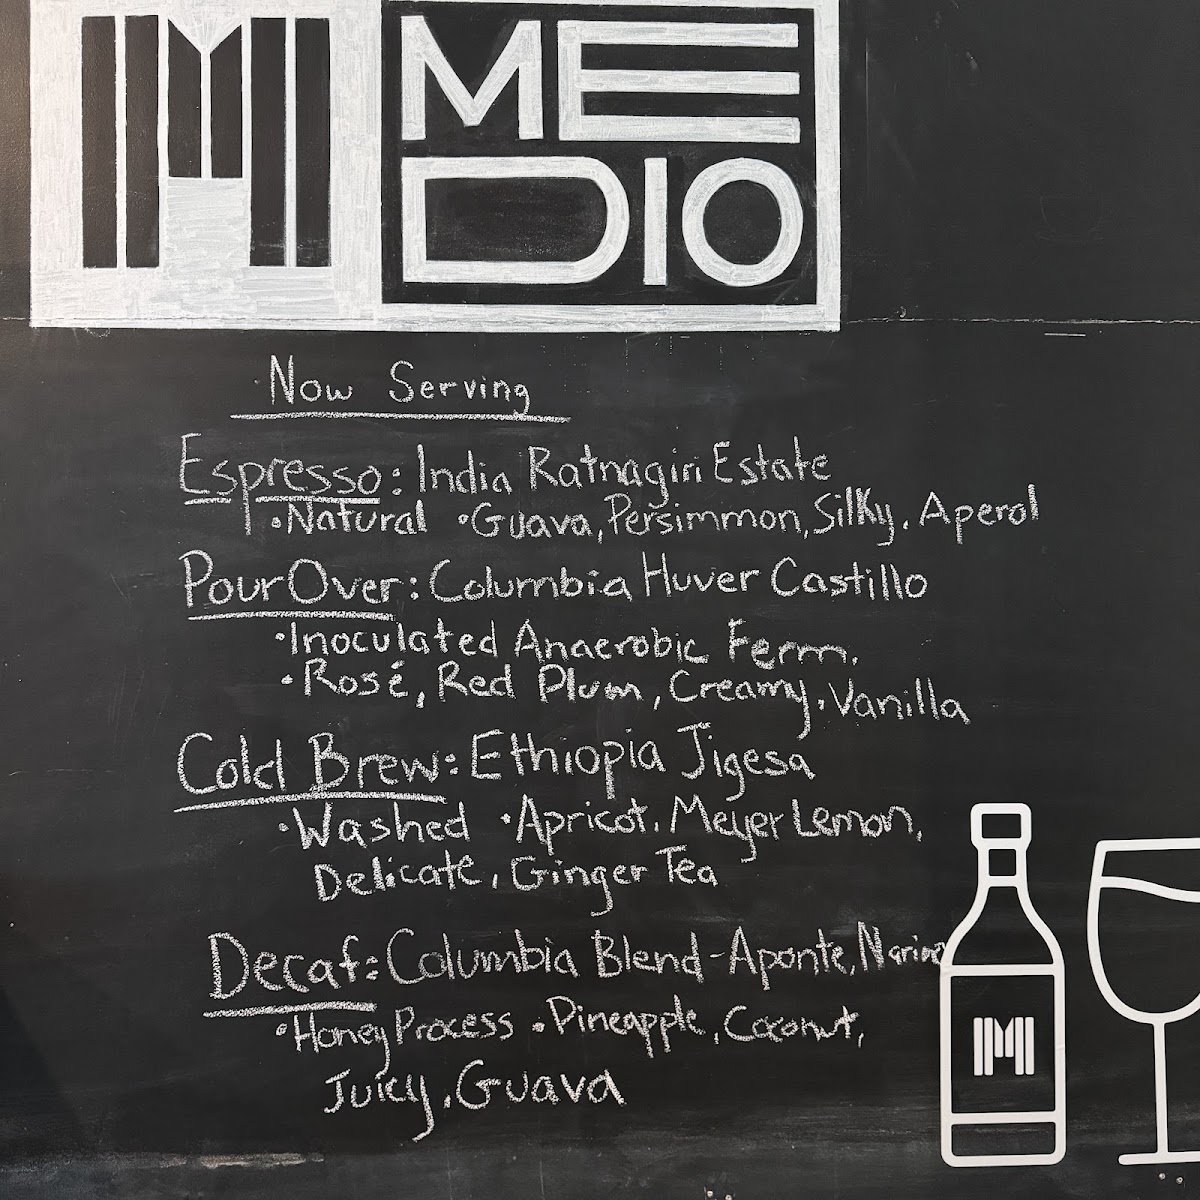 MEDIO
Now Serving
Espresso: India Ratnagiri Estate
•Natural •Guava, Persimmon, Silky, Aperol
Pour Over: Columbia Huver Castillo
•Inoculated Anaerobic Ferm.
•Rosé, Red Plum, Creamy, Vanilla
Cold Brew: Ethiopia Jigesa
•Washed •Apricot, Meyer Lemon,
Delicate, Ginger Tea
Decaf: Columbia Blend - Aponte, Narino
•Honey Process •Pineapple, Coconut,
Juicy, Guava
M